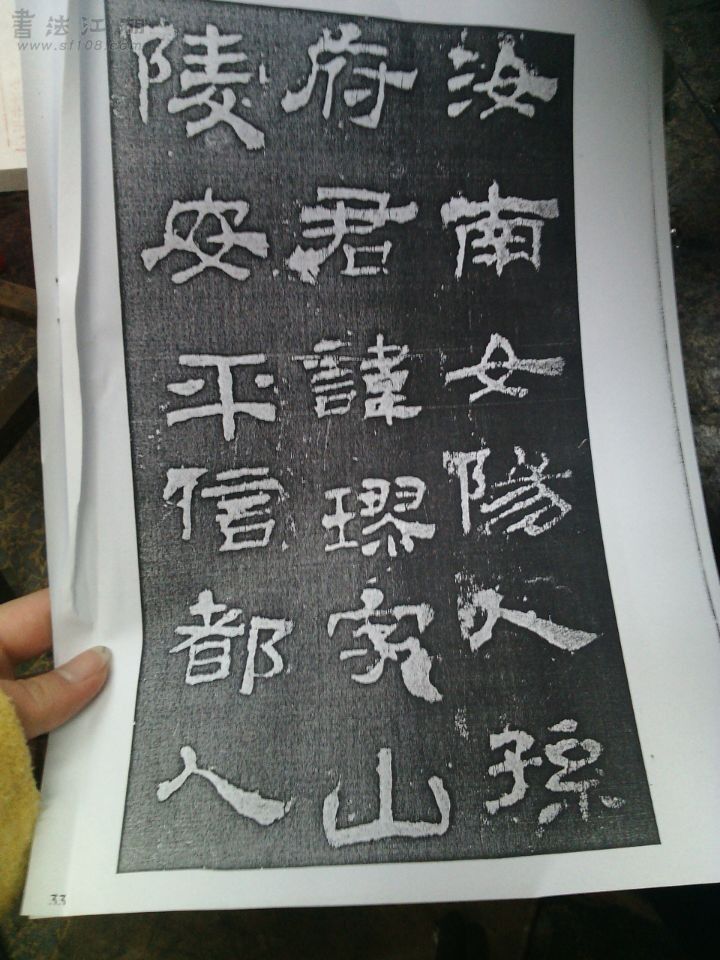 書法江湖
www.sf108.com
汝南女陽人孫
府君諱璆家山
陵安平信都人
33